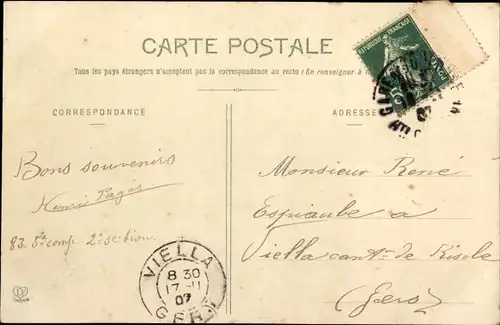 CARTE POSTALE
Tous les pays étrangers n'acceptent pas la correspondance au recto (Se renseigner à
CORRESPONDANCE
ADRESSE
REPUBLIQUE FRANÇAISE
POSTES
Bons souvenirs
Henri Pagès
83. 5e comp. 2e section.
Monsieur René
Espiaube à
Viella cant. de Riscle
(Gers)
VIELLA
8 30
17 - 11
07
GERS